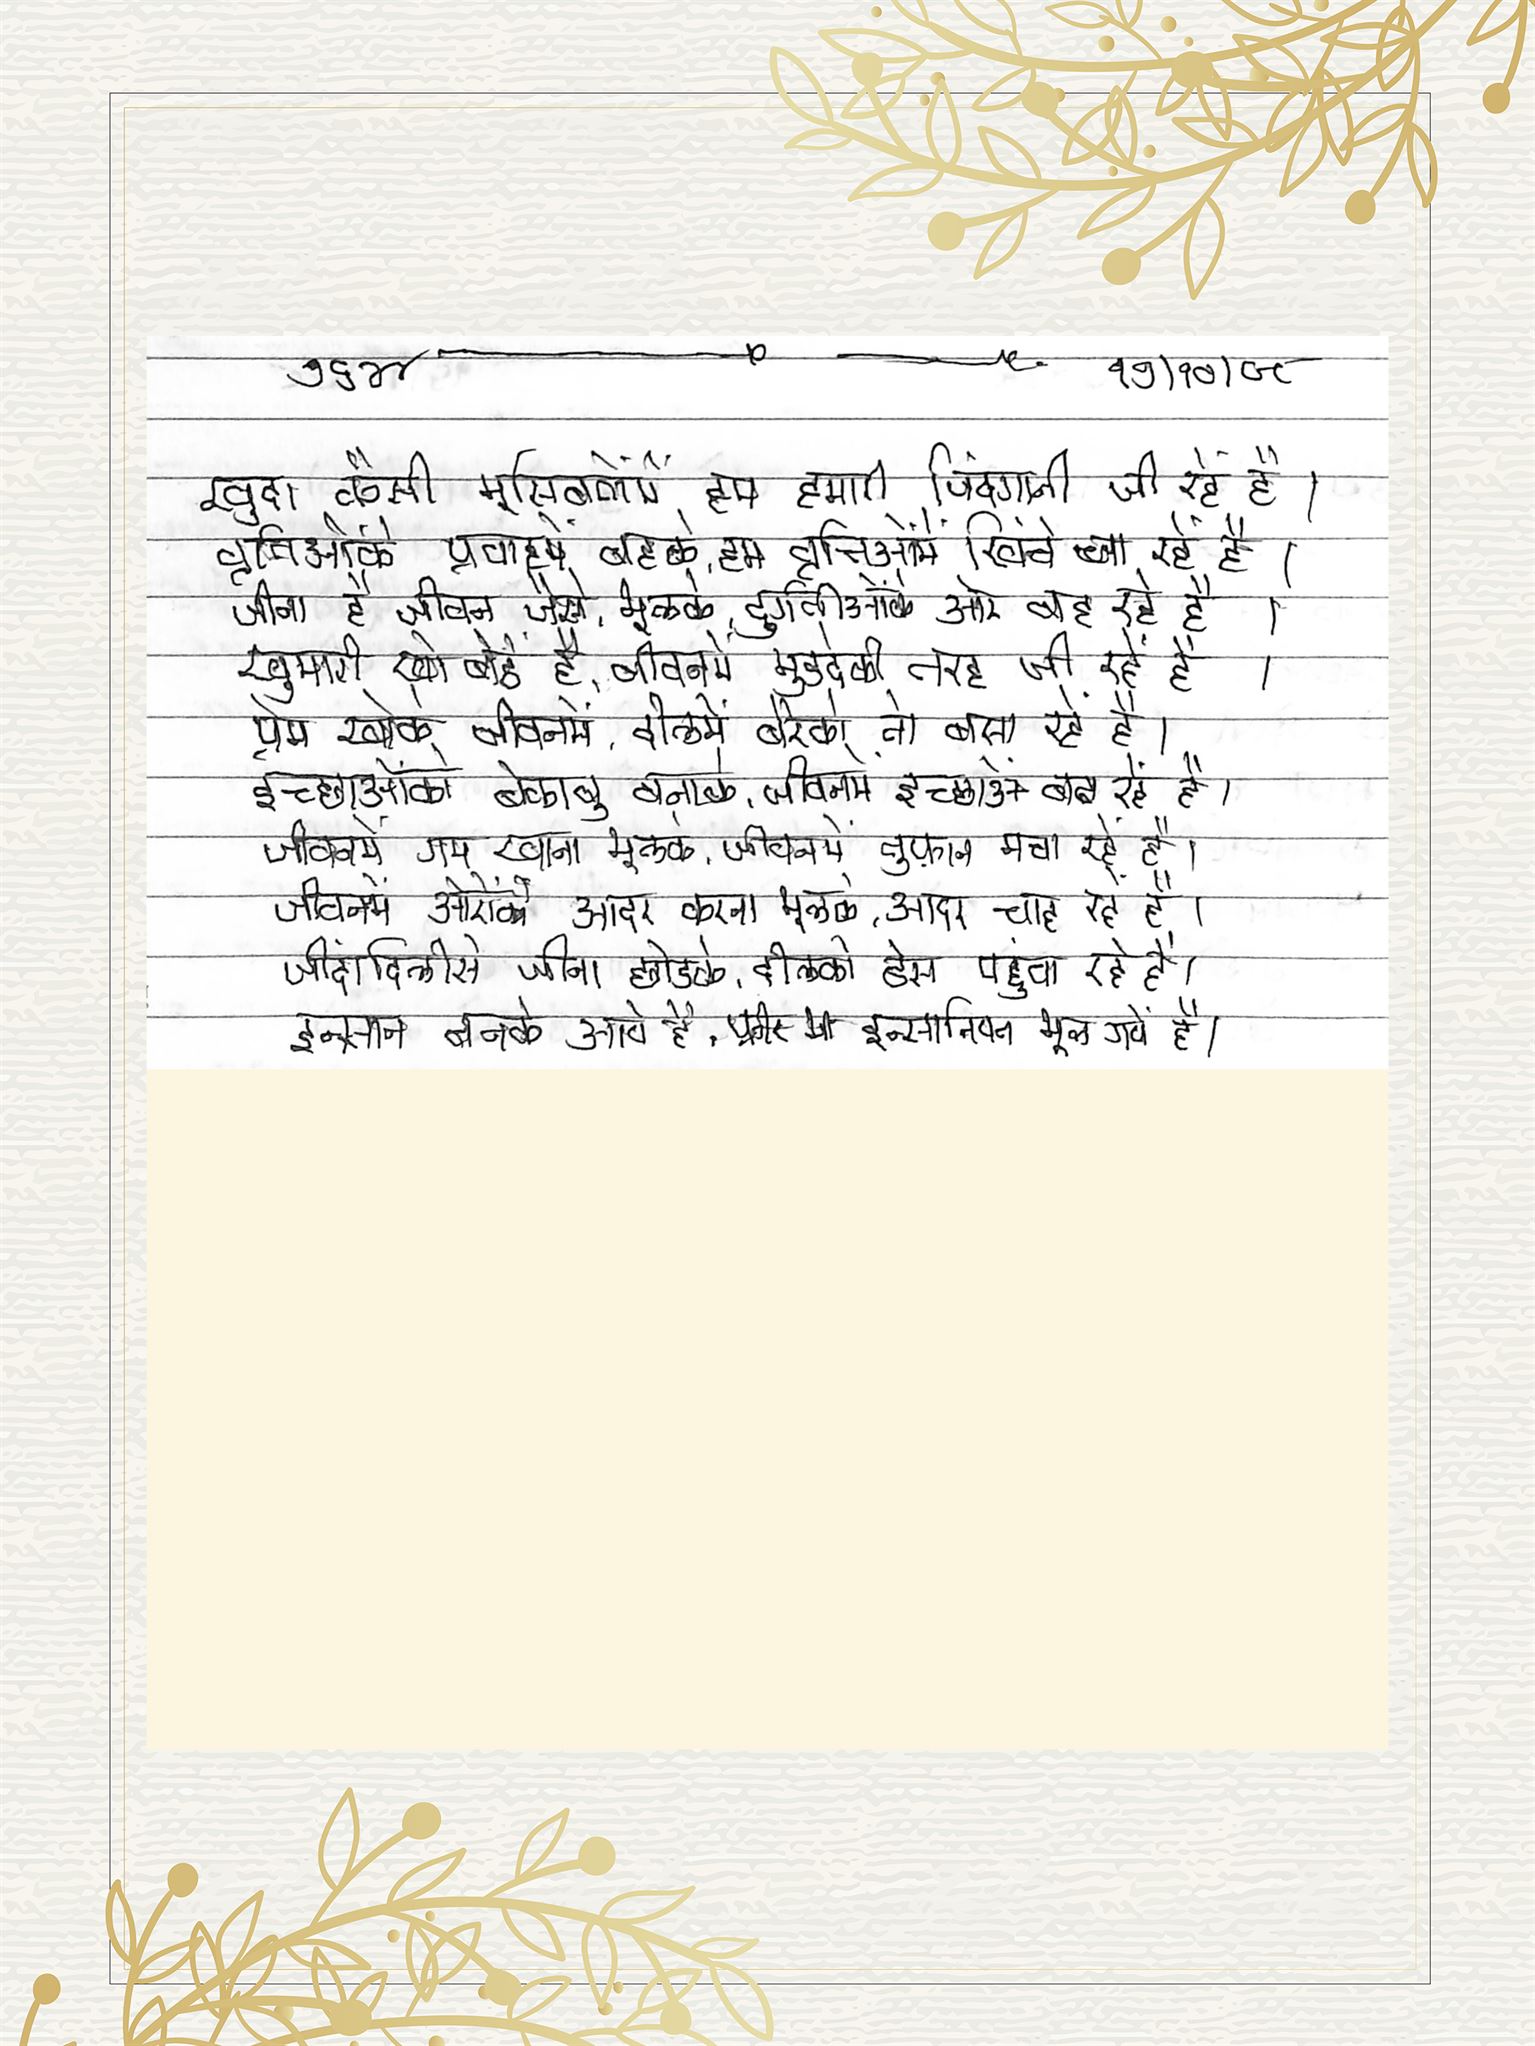 १७/१०/९८
खुदा कैसी मूसिबतोंमें हम हमारी जिंदगानी जी रहें है ।
वृत्तिओंके प्रवाहमें बहके, हम वृत्तिओंमें खिंचे जा रहें है ।
जीना है जीवन जैसे, भूलके, दुर्गतीओंके ओर बह रहे है ।
खुमारी खो बेठें है, जीवनमें मुडदेकी तरह जी रहें है ।
प्रेम खोके जीवनमें, दीलमें बैरको तो बसा रहें है ।
इच्छाओंको बेकाबु बनाके, जीवनमें इच्छाओंमें बह रहें है ।
जीवनमें गम खाना भूलके, जीवनमें तुफ़ान मचा रहें है ।
जीवनमें ओरोंको आदर करना भूलके, आदर चाह रहें है ।
जींदादिलीसे जीना छोडके, दीलको ठेस पहुंचा रहे है ।
इन्सान बनके आये है, फिर भी इन्सानियत भूल गयें है ।